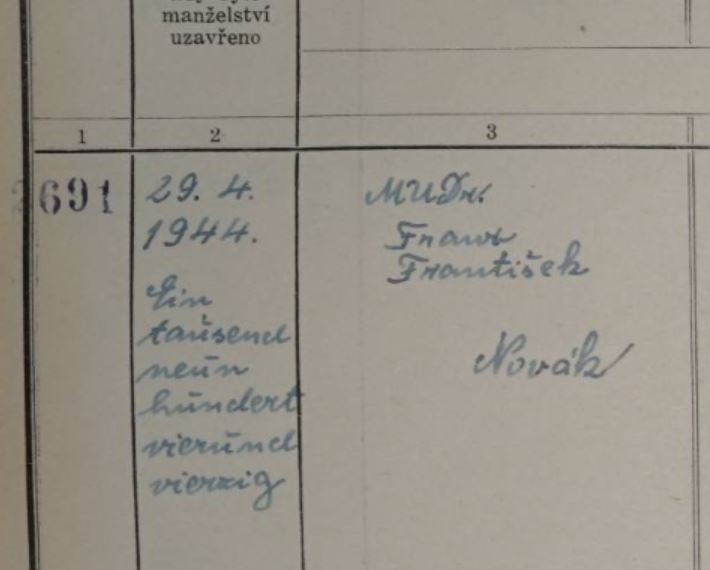 manželství
uzavřeno
1
2
3
691
29. 4.
1944.
Ein
tausend
neun
hundert
vierund
vierzig
MUDr.
Franz
František
Novák